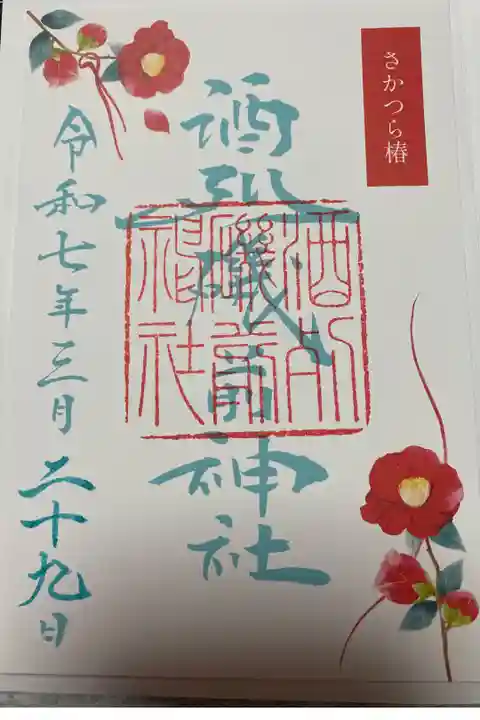 さかつら椿
酒列磯前神社
酒列磯前神社
令和七年三月二十九日